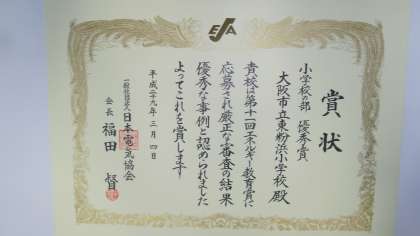 EJA
賞状
小学校の部 優秀賞
大阪市立東粉浜小学校 殿
貴校は第十一回エネルギー教育賞に
応募され厳正な審査の結果
優秀な事例と認められました
よってこれを賞します
平成二十九年三月四日
一般社団法人 日本電気協会
会長 福田 督